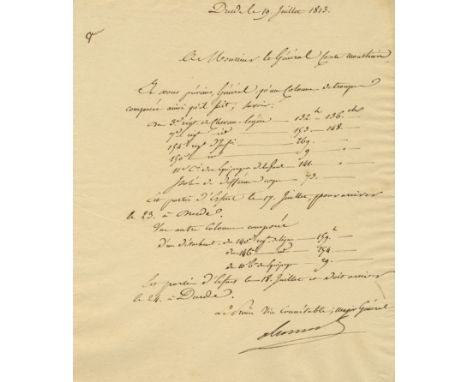 Dresde le 19 Juillet 1813.
A Monsieur le Général Comte
Je vous préviens, Général qu'une Colonne de troupes
composée ainsi qu'il suit, savoir:
du 3e régt de Chevau-légers — 132 h — 136 chev
7e régt id — 153 — 148. —
154e régt d'Infie — 269 —
150e id — 9 —
— 141 —
Isolés de différens corps — 73. —
est partie d'Erfurt le 17 Juillet pour arriver
le 23. à Dresde.
Une autre Colonne composée
d'un détachement du 140e régt de ligne — 159. h
du 146e id — 254. —
— 29. —
est partie d'Erfurt le 18 Juillet et doit arriver
le 24. à Dresde.
Le Prince Vice Connétable, major Général